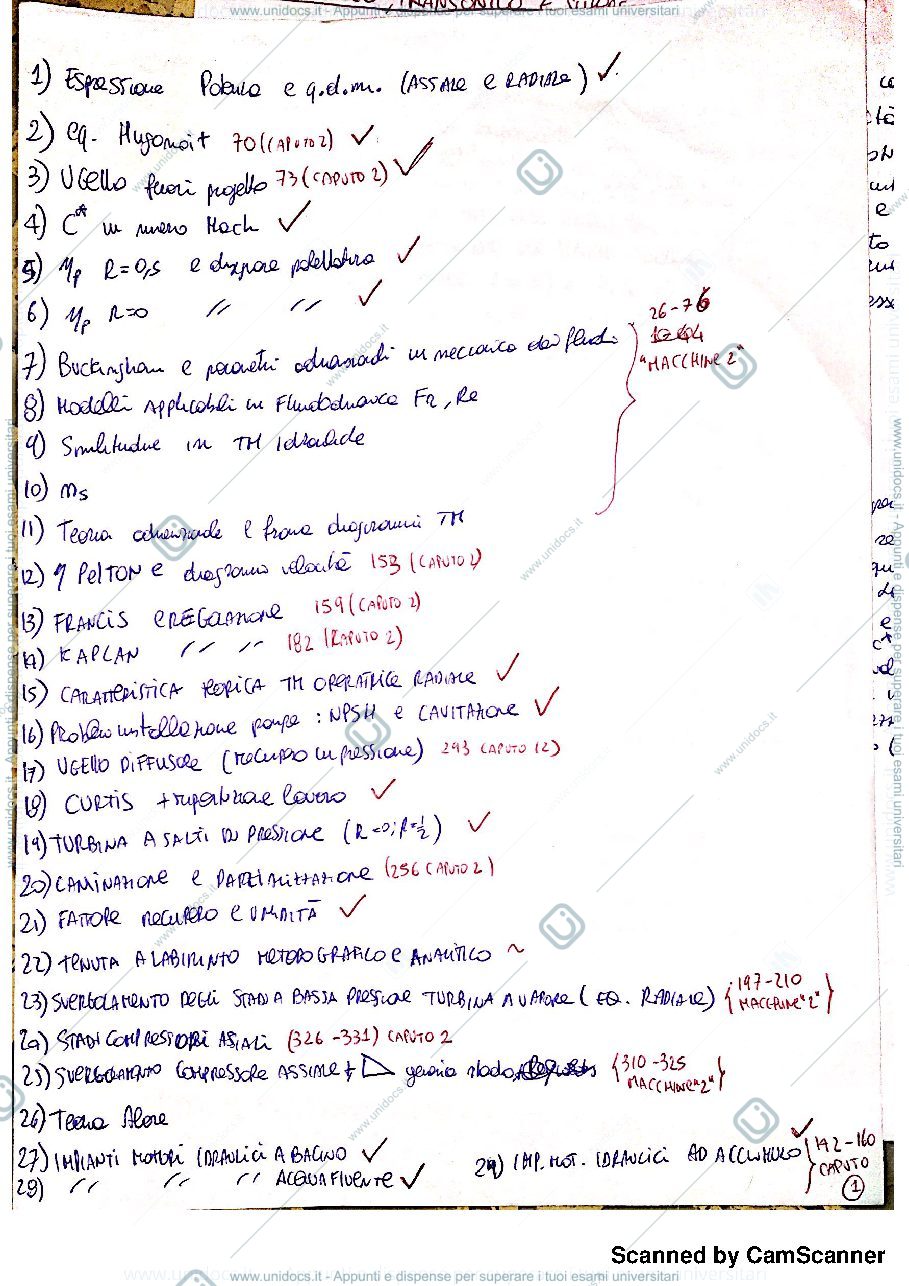 www.unidocs.it - Appunti e dispense per superare i tuoi esami universitari
TRANSONICO E
1) Espressione Potenza e q.d.m. (ASSIALE e RADIALE) ✓
2) eq. Hugoniot 70 (CAPUTO 2) ✓
3) Ugello fuori progetto 73 (CAPUTO 2) ✓
4) C* in numero Mach ✓
5) ηp R=0,5 e disegnare palettatura ✓
6) ηp R=0 // // ✓
7) Buckingham e parametri adimensionali in meccanica dei fluidi
8) Modelli Applicabili in Fluidodinamica Fr, Re
9) Similitudine in TM idrauliche
10) ns
11) Teoria adimensionale e frana diagrammi TM
26-76
"MACCHINE 2"
12) η PELTON e diagramma velocità 153 (CAPUTO 2)
13) FRANCIS e REGOLAZIONE 159 (CAPUTO 2)
14) KAPLAN // // 182 (CAPUTO 2)
15) CARATTERISTICA TEORICA TM OPERATRICE RADIALE ✓
16) Problem installazione pompe : NPSH e CAVITAZIONE ✓
17) UGELLO DIFFUSORE (recupero in pressione) 293 CAPUTO (2)
18) CURTIS + ripartizione lavoro ✓
19) TURBINA A SALTI DI PRESSIONE (R=0; R=½) ✓
20) LAMINAZIONE e PARZIALIZZAZIONE (256 CAPUTO 2)
21) FATTORE RECUPERO E UMIDITÀ ✓
22) TENUTA A LABIRINTO METODO GRAFICO E ANALITICO ~
23) SVERGOLAMENTO DEGLI STADI A BASSA PRESSIONE TURBINA A VAPORE (EQ. RADIALE) {197-210 MACCHINE "2"}
24) STADI COMPRESSORI ASSIALI (326-331) CAPUTO 2
25) SVERGOLAMENTO COMPRESSORE ASSIALE + generico stadio {310-325 MACCHINE "2"}
26) Teoria Alare
27) IMPIANTI MOTORI IDRAULICI A BACINO ✓
28) // // // ACQUA FLUENTE ✓
29) IMP. MOT. IDRAULICI AD ACCUMULO ✓ 142-160 CAPUTO
1
Scanned by CamScanner
www.unidocs.it - Appunti e dispense per superare i tuoi esami universitari